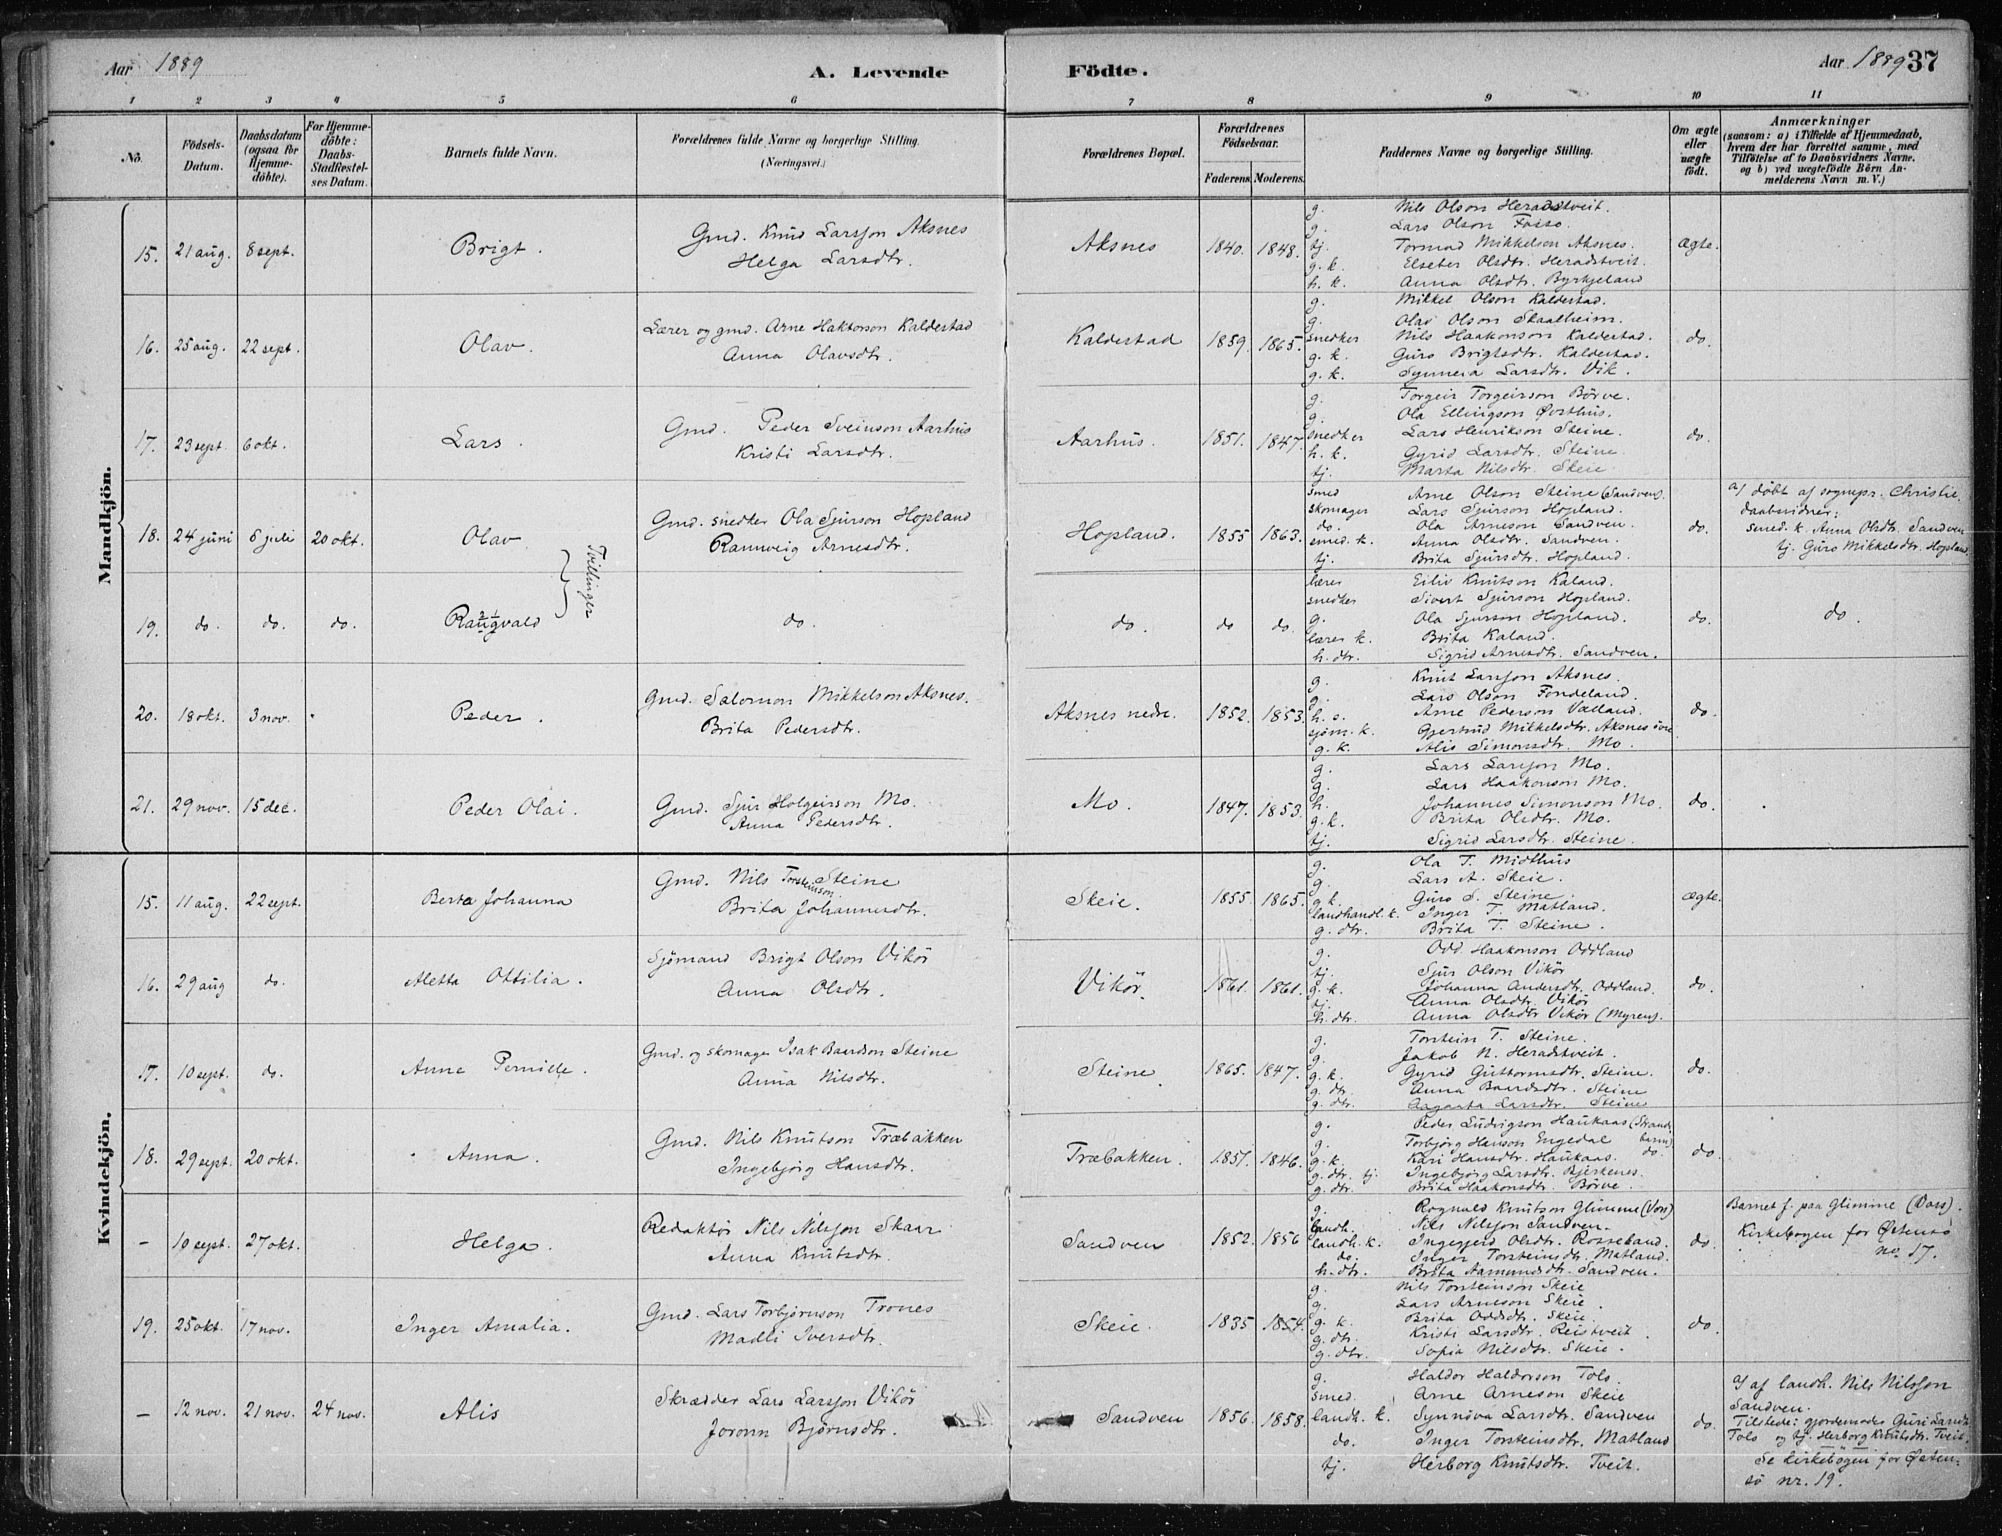 Aar 1889
A. Levende Födte.
Aar 1889 37
1 2 3 4 5 6 7 8 9 10 11
No.
Födsels-Datum.
Daabsdatum (ogsaa for Hjemme-döbte).
For Hjemme-döbte: Daabs-Stadfæstel-ses Datum.
Barnets fulde Navn.
Forældrenes fulde Navne og borgerlige Stilling.
(Næringsvei.)
Forældrenes Bopæl.
Forældrenes Födselsaar.
Faderens. Moderens.
Faddernes Navne og borgerlige Stilling.
Om ægte eller uægte födt.
Anmærkninger
(saasom: a) i Tilfælde af Hjemmedaab,
hvem der har forrettet samme, med
Tilföielse af to Daabsvidners Navne,
og b) ved uægtefödte Börn An-
melderens Navn m. V.)
Mandkjön.
15. 21 aug. 8 sept. Brigt. Gmd. Knud Larsson Aksnes
Helga Larsdtr.
Aksnes 1840. 1848.
g. Nils Olson Heradstveit.
g. Lars Olson Fosso.
tj. Tormod Mikkelson Aksnes.
g. k. Elseber Olsdtr. Heradstveit.
h. k. Anna Olsdtr. Byrkjeland
Ægte.
16. 25 aug. 22 sept. Olav. Lærer og gmd. Arne Haktorson Kaldestad
Anna Olavsdtr.
Kaldestad 1859. 1865.
g. Mikkel Olson Kaldestad.
g. Olav Olson Skaalheim.
snedker Nils Haakonson Kaldestad.
g. k. Guro Brigtsdtr. Kaldestad.
g. k. Synneva Larsdtr. Vik.
do.
17. 23 sept. 6 okt. Lars. Gmd. Peder Sveinson Aarhus
Kristi Larsdtr.
Aarhus. 1851. 1847.
g. Torgeir Torgeirson Börve.
g. Ola Ellingson Östhus.
snedker Lars Henrikson Steine.
h. k. Gyrid Larsdtr. Steine
tj. Marta Nilsdtr. Skeie
do.
18. 24 juni 6 juli 20 okt. Olav Gmd. snedker Ola Sjurson Hopland
Rannveig Arnesdtr.
Hopland. 1855 1863.
smed Arne Olson Steine (Sandven).
skomager Lars Sjurson Hopland.
do. Ola Arneson Sandven.
smed. k. Anna Olsdtr. Sandven.
tj. Brita Sjursdtr. Hopland.
do.
a) döbt af sognepr. Christie.
daabsvidner:
smed. k. Anna Olsdtr. Sandven
tj. Guro Mikkelsdtr. Hopland
Tvillinger
19. do. do. do. Raugvald do. do. do do.
lærer Eiliv Knutson Kaland.
snedker Sivert Sjurson Hopland.
g. Ola Sjurson Hopland.
lærer k. Brita Kaland.
h. dtr. Sigrid Arnesdtr. Sandven.
do. do
20. 18 okt. 3 nov. Peder. Gmd. Salomon Mikkelson Aksnes.
Brita Pedersdtr.
Aksnes nedre. 1852. 1853.
g. Knut Larsson Aksnes.
g. Lars Olson Fondeland.
h. s. Arne Pederson Valland.
sjöm. k. Gjertrud Mikkelsdtr. Aksnes övre
g. k. Alis Simonsdtr. Mo.
do.
21. 29 nov. 15 dec. Peder Olai. Gmd. Sjur Holgeirson Mo.
Anna Pedersdtr.
Mo. 1847. 1853.
g. Lars Larsson Mo.
g. Lars Haakonson Mo.
h. Johannes Simonson Mo.
g. k. Brita Olsdtr. Mo.
tj. Sigrid Larsdtr. Steine.
do.
Kvindekjön.
15. 11 aug. 22 sept. Berta Johanna Gmd. Nils Torsteinson Steine
Brita Johannesdtr.
Skeie. 1855. 1865.
g. Ola T. Midthus
g. Lars A. Skeie.
g. k. Guro S. Steine.
landhandl. k. Inger T. Matland.
g. dtr. Brita T. Steine.
ægte.
16. 29 aug do. Aletta Ottilia. Sjömand Brigt Olson Vikör
Anna Olsdtr.
Vikör. 1861. 1861.
g. Odd Haakonson Oddland
tj. Sjur Olson Vikör
g. k. Johanna Andersdtr. Oddland.
tj. Anna Olsdtr. Vikör
h. dtr. Anna Olsdtr Vikör (Myren).
do.
17. 10 sept. do. Anne Pernille. Gmd. og skomager Isak Baardson Steine
Anna Nilsdtr.
Steine 1865. 1847.
g. Torstein T. Steine.
g. Jakob N. Heradstveit.
g. k. Gyrid Guttormsdtr. Steine.
g. dtr. Anna Baardsdtr. Steine
g. dtr. Aagaata Larsdtr. Steine
do.
18. 29 sept. 20 okt. Anna. Gmd. Nils Knutson Træbakken
Ingebjörg Hansdtr.
Træbakken. 1851. 1846.
g. Peder Ludvigson Haukaas (Strande-
g. Torbjörg Hanson Engedal barm)
g. k. Kari Hansdtr. Haukaas. do.
g. dtr. tj. Ingebjörg Larsdtr. Bjerkenes.
g. dtr. Brita Haakonsdtr. Börve.
do.
- 10 sept. 27 okt. Helga. Redaktör Nils Nilsson Skaar
Anna Knutsdtr.
Sandven 1852. 1856
g. Rognald Knutson Glimme (Vors)
landh. Nils Nilsson Sandven.
landh. k. Ingegjerd Olsdtr. Rosseland.
do. Inger Torsteinsdtr. Matland.
h. dtr. Brita Aamundsdtr. Sandven.
do.
Barnet f. paa Glimme (Vors).
Kirkebogen for Östensö
no. 17.
19. 25 okt. 17 nov. Inger Amalia. Gmd. Lars Torbjörnson Trones
Madli Iversdtr.
Skeie. 1835 1854.
g. Nils Torsteinson Skeie
g. Lars Arneson Skeie.
g. k. Brita Oddsdtr. Skeie.
g. dtr. Kristi Larsdtr. Reistveit.
g. dtr. Sofia Nilsdtr. Skeie.
do.
- 12 nov. 21 nov. 24 nov. Alis Skrædder Lars Larsson Vikör
Joronn Björnsdtr.
Sandven 1856. 1858.
g. Haldor Haldorson Tolo.
smed. Arne Arneson Skeie
landh. k. Synnöva Larsdtr. Sandven
do. Inger Torsteinsdtr. Matland
tj. Herborg Knutsdtr. Tveit.
do.
a) af landh. Nils Nilsson
Sandven.
Tilstede: gjordemoder Guri Larsdtr.
Tolo og tj. Herborg Knutsdtr. Tveit.
Se kirkebogen for Östen-
sö nr. 19.